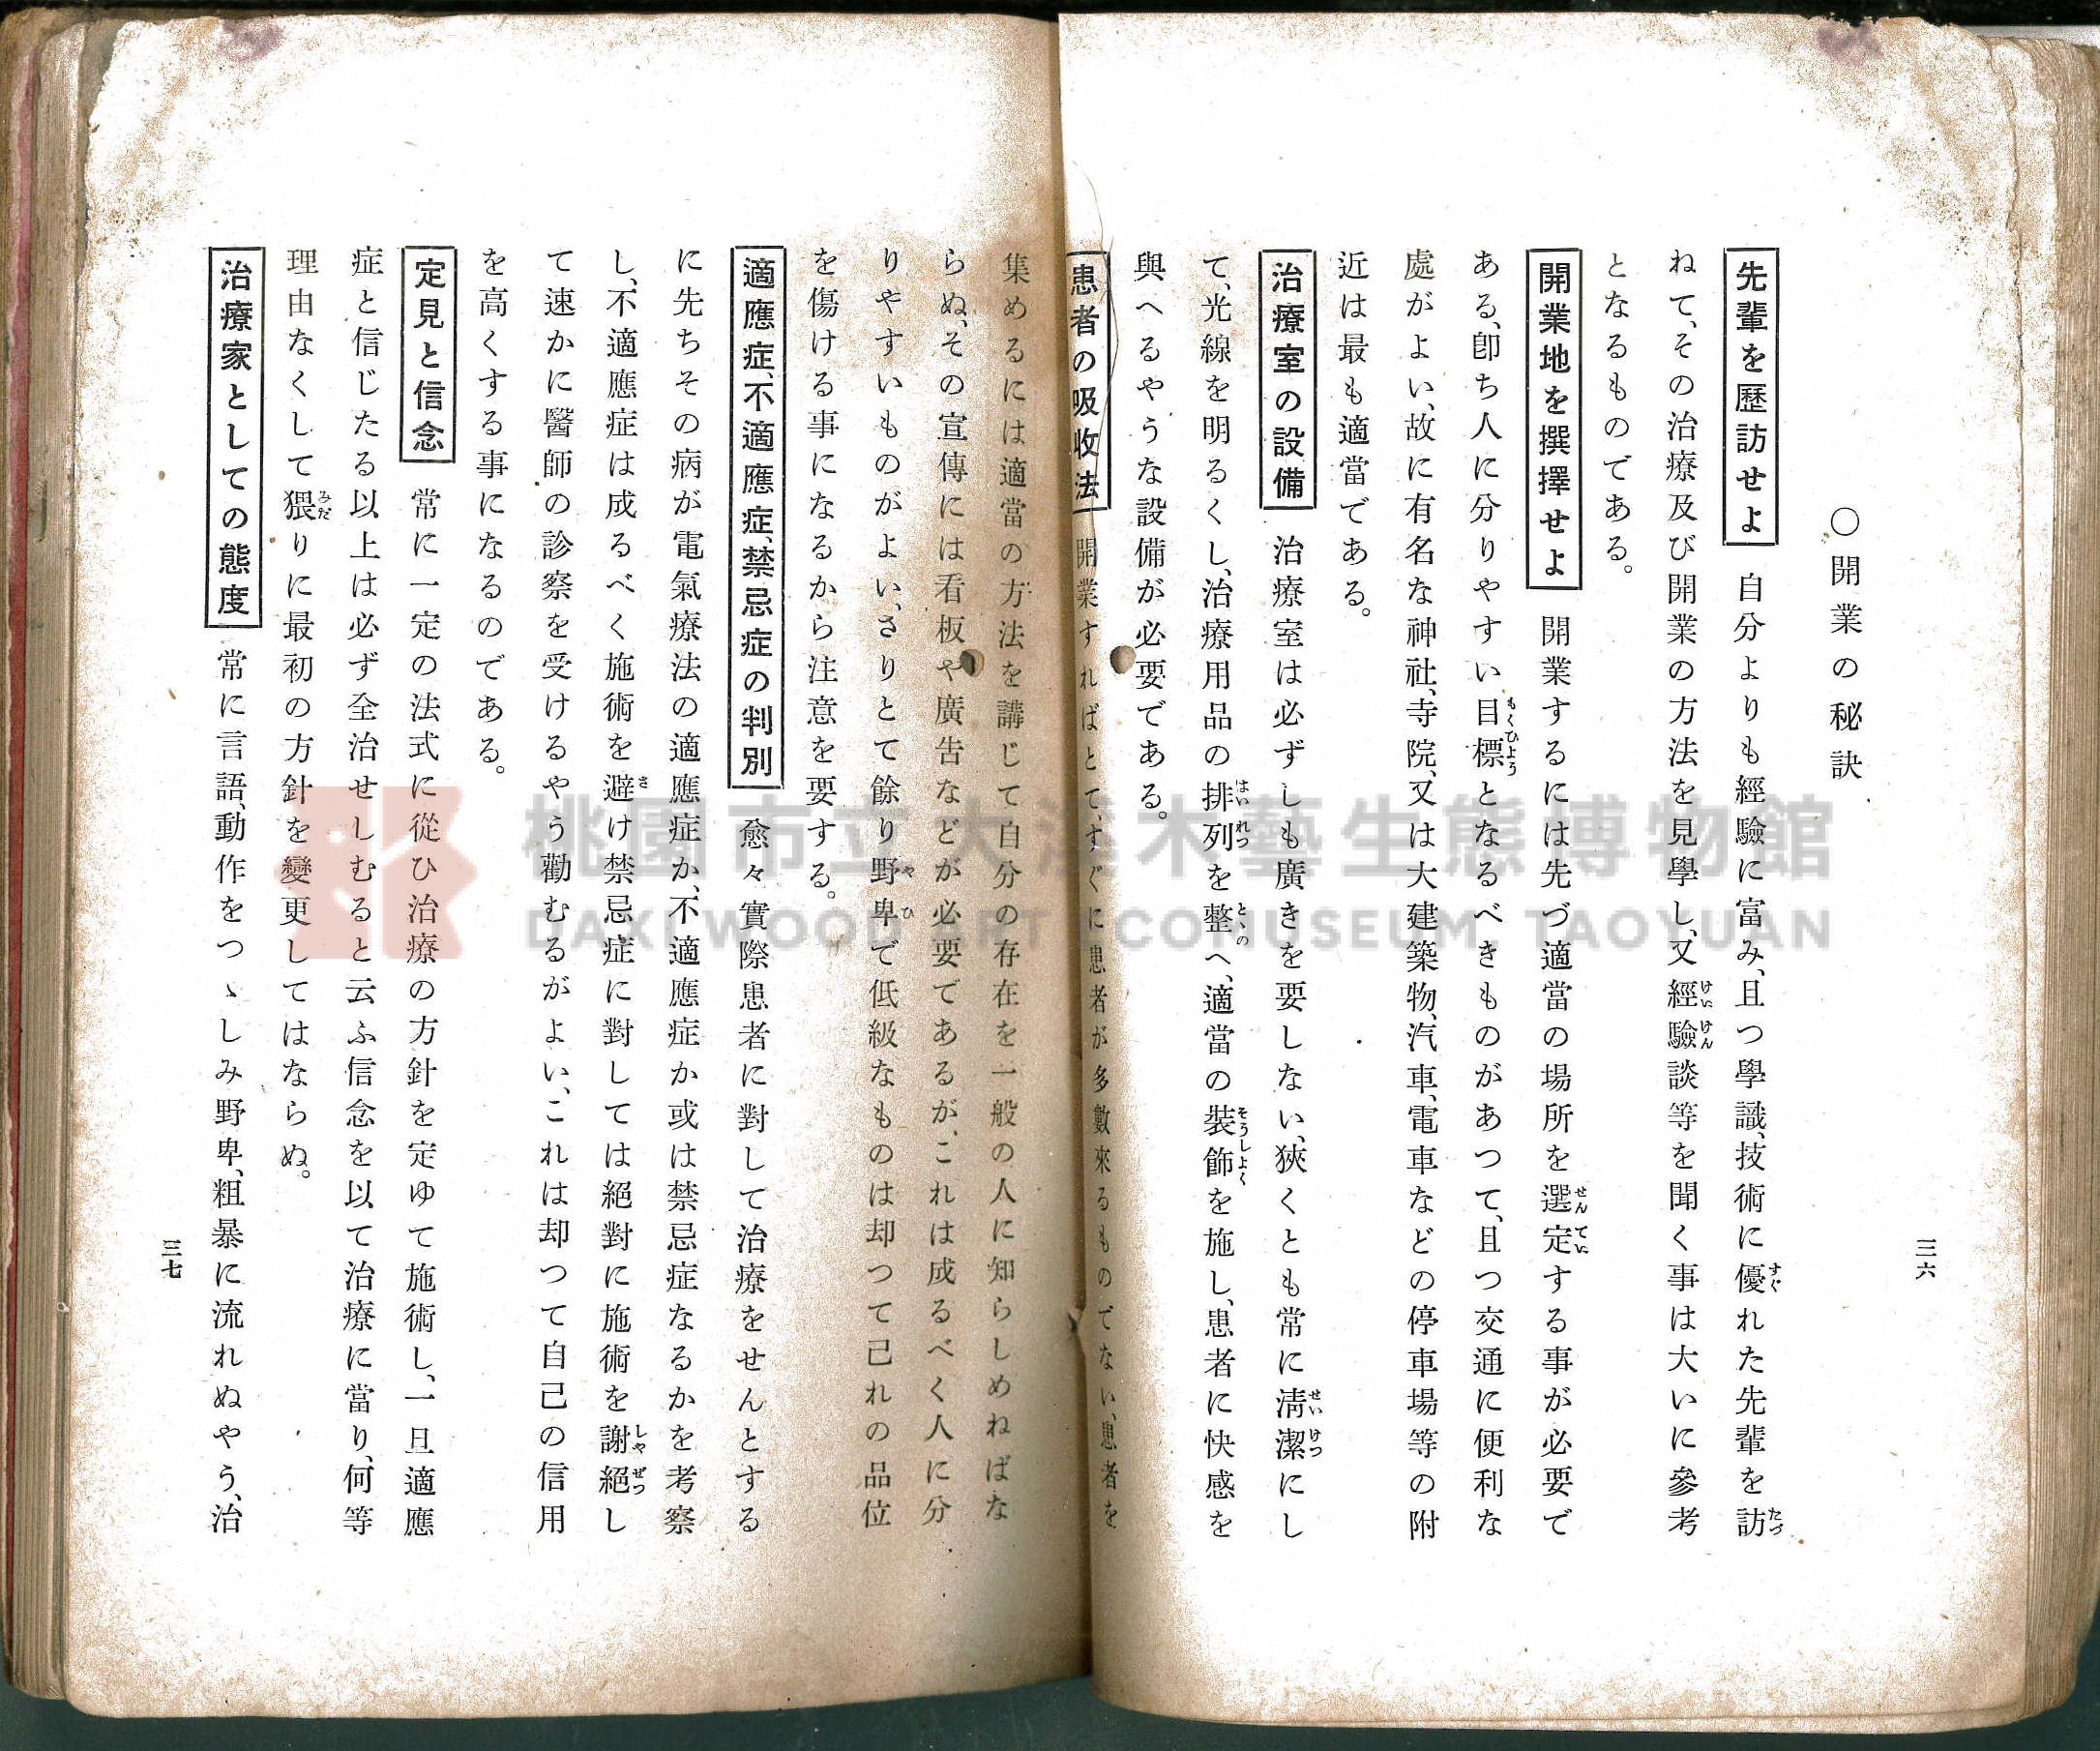 三六
○開業の秘訣
先輩を歷訪せよ 自分よりも經驗に富み、且つ學識、技術に優れた先輩を訪
ねて、その治療及び開業の方法を見學し、又經驗談等を聞く事は大いに參考
となるものである。
開業地を撰擇せよ 開業するには先づ適當の場所を選定する事が必要で
ある、卽ち人に分りやすい目標となるべきものがあつて、且つ交通に便利な
處がよい、故に有名な神社、寺院、又は大建築物、汽車、電車などの停車場等の附
近は最も適當である。
治療室の設備 治療室は必ずしも廣きを要しない、狹くとも常に淸潔にし
て、光線を明るくし、治療用品の排列を整へ、適當の裝飾を施し、患者に快感を
與へるやうな設備が必要である。
患者の吸收法 開業すればとて、すぐに患者が多數來るものでない、患者を
集めるには適當の方法を講じて自分の存在を一般の人に知らしめねばな
らぬ、その宣傳には看板や廣吿などが必要であるが、これは成るべく人に分
りやすいものがよい、さりとて餘り野卑で低級なものは却つて己れの品位
を傷ける事になるから注意を要する。
適應症、不適應症、禁忌症の判別 愈々實際患者に對して治療をせんとする
に先ちその病が電氣療法の適應症か、不適應症か或は禁忌症なるかを考察
し、不適應症は成るべく施術を避け禁忌症に對しては絕對に施術を謝絕し
て速かに醫師の診察を受けるやう勸むるがよい、これは却つて自己の信用
を高くする事になるのである。
定見と信念 常に一定の法式に從ひ治療の方針を定ゆて施術し、一旦適應
症と信じたる以上は必ず全治せしむると云ふ信念を以て治療に當り、何等
理由なくして猥りに最初の方針を變更してはならぬ。
治療家としての態度 常に言語、動作をつゝしみ野卑、粗暴に流れぬやう、治
三七
桃園市立大溪木藝生態博物館
DAXI WOOD ART ECOMUSEUM, TAOYUAN